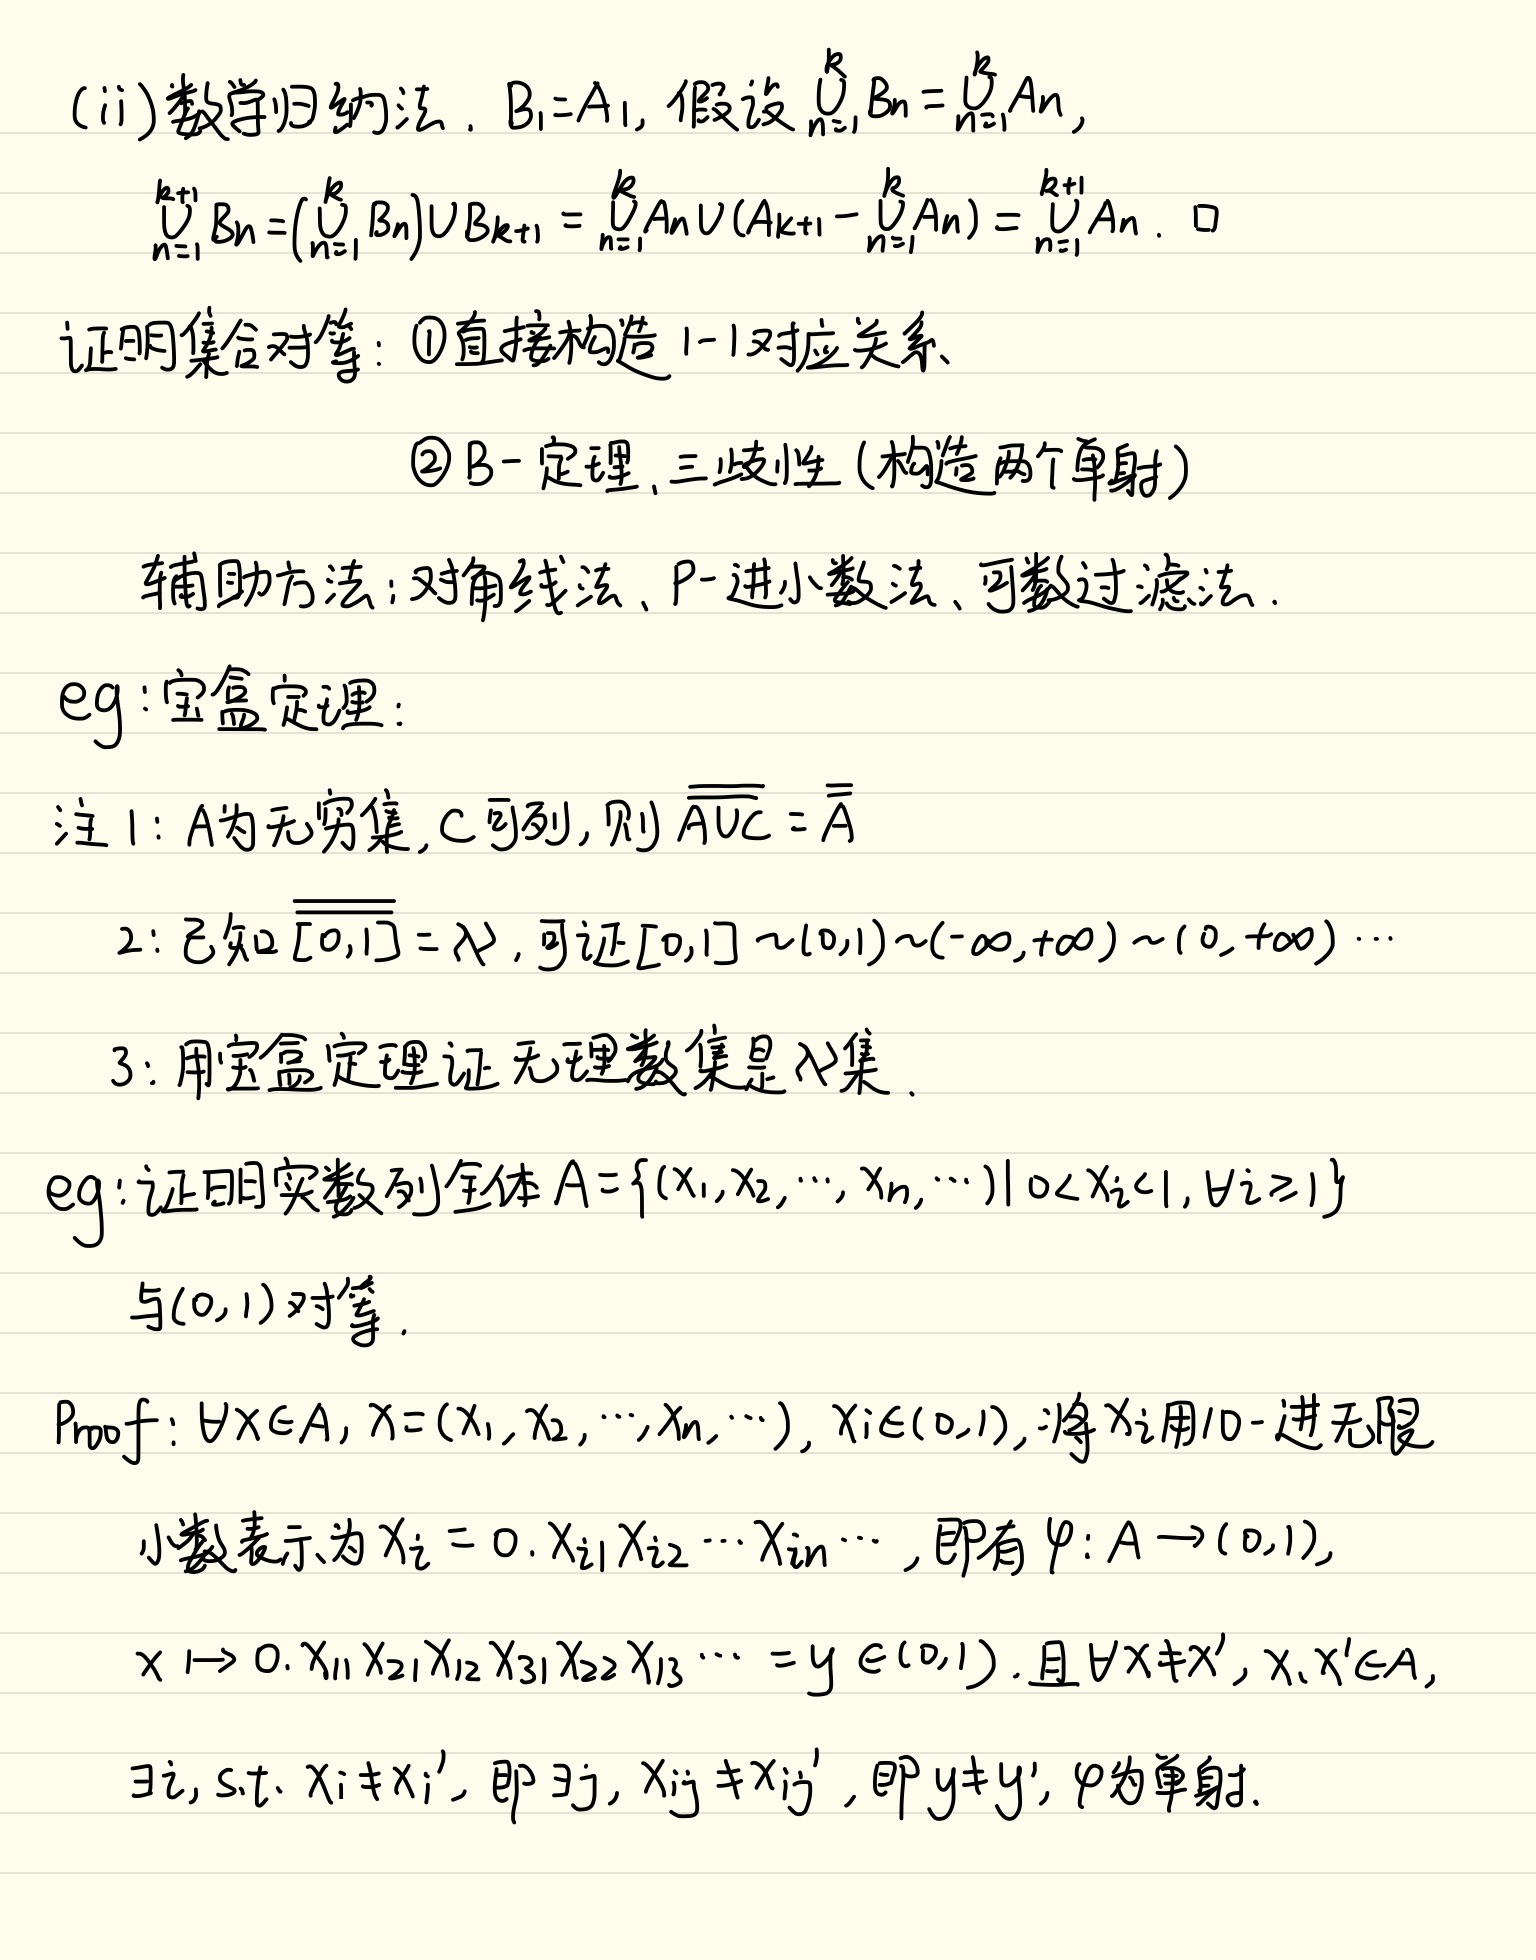 (ii)数学归纳法. B₁=A₁, 假设 ⋃ₙ₌₁ᵏ Bₙ = ⋃ₙ₌₁ᵏ Aₙ,
⋃ₙ₌₁ᵏ⁺¹ Bₙ = (⋃ₙ₌₁ᵏ Bₙ)∪Bₖ₊₁ = ⋃ₙ₌₁ᵏ Aₙ∪(Aₖ₊₁ - ⋃ₙ₌₁ᵏ Aₙ) = ⋃ₙ₌₁ᵏ⁺¹ Aₙ. □
证明集合对等: ①直接构造 1-1对应关系、
②B-定理、三歧性(构造两个单射)
辅助方法: 对角线法、P-进小数法、可数过滤法.
eg:宝盒定理:
注 1: A为无穷集, C可列, 则 \overline{\overline{A∪C}} = \overline{\overline{A}}
2: 已知 \overline{\overline{[0,1]}} = λ, 可证[0,1] ~(0,1)~(-∞,+∞) ~(0,+∞) ⋯
3: 用宝盒定理证无理数集是λ集.
eg:证明实数列全体 A={(x₁,x₂,⋯,xₙ,⋯)| 0<xᵢ<1, ∀i≥1}
与(0,1)对等.
Proof: ∀x∈A, x=(x₁,x₂,⋯,xₙ,⋯), xᵢ∈(0,1), 将xᵢ用10-进无限
小数表示为 xᵢ = 0.xᵢ₁xᵢ₂⋯xᵢₙ⋯, 即有 φ: A→(0,1),
x ↦ 0.x₁₁x₂₁x₁₂x₃₁x₂₂x₁₃⋯ = y ∈(0,1). 且 ∀x≠x', x、x'∈A,
∃i, s.t. xᵢ≠xᵢ', 即∃j, xᵢⱼ≠xᵢⱼ', 即y≠y', φ为单射.